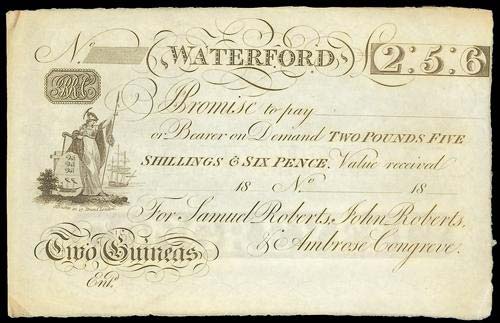 No.
WATERFORD
2:5:6
I Promise to pay
or Bearer on Demand TWO POUNDS FIVE
SHILLINGS & SIX PENCE. Value received
18 No. 18
For Samuel Roberts, John Roberts,
& Ambrose Congreve.
Two Guineas
Ent.